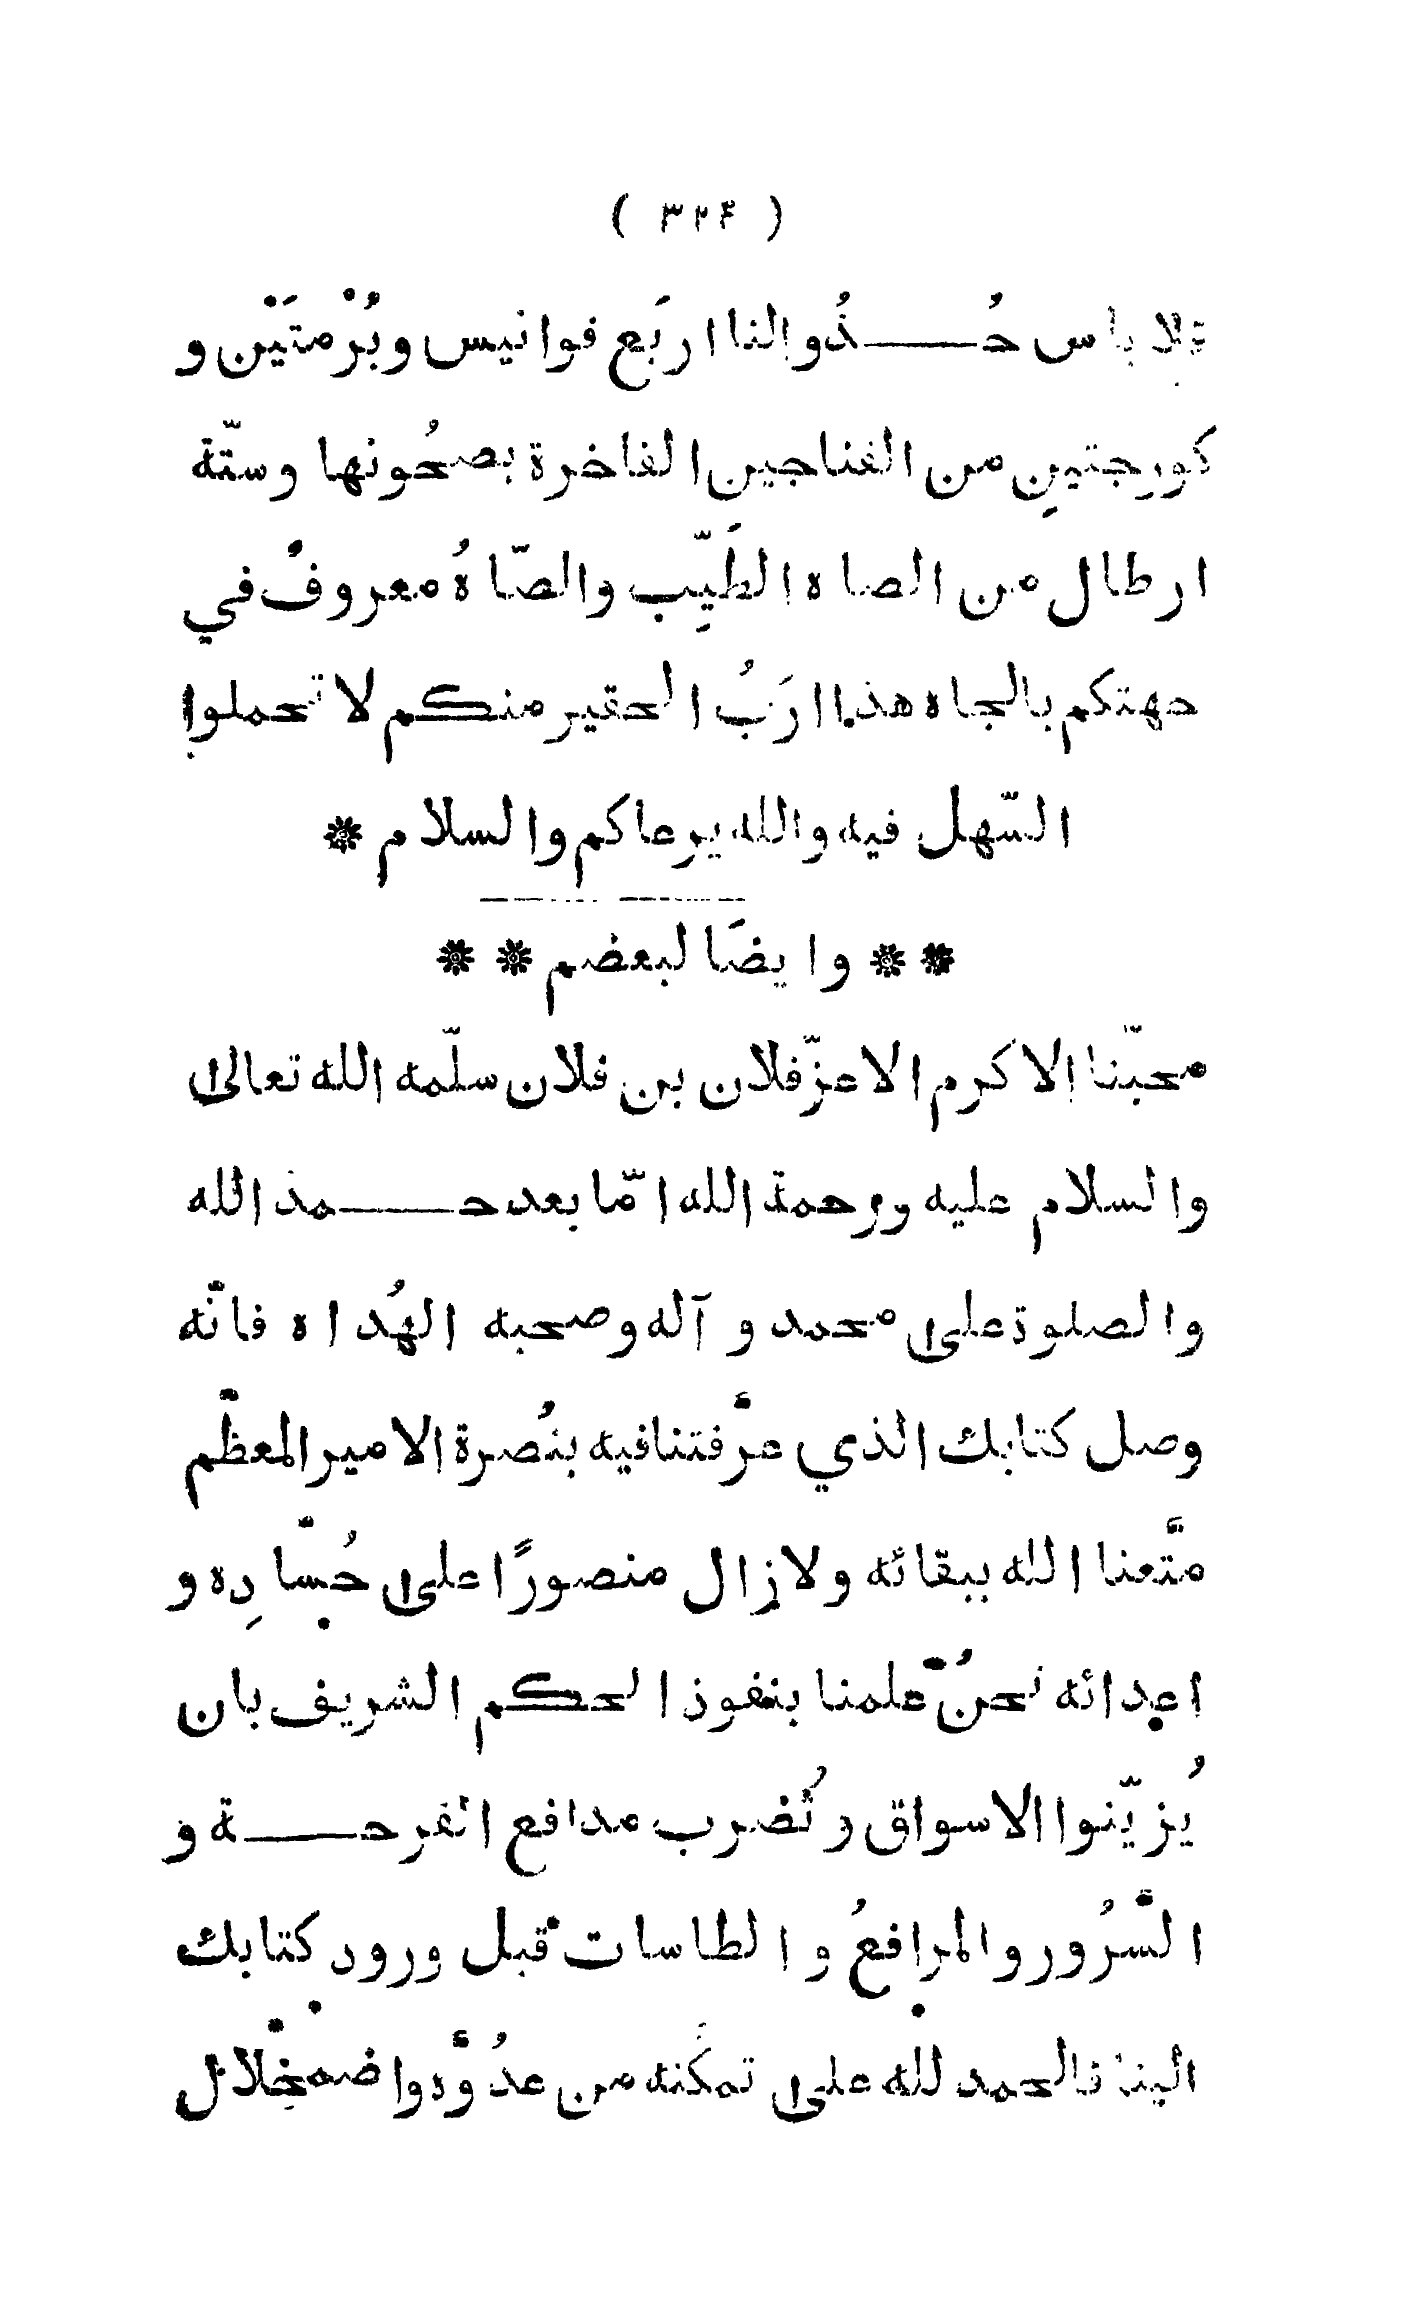 ( ٣٢۴ )
فلا باس خُـــذُوا لنا اربَع فوانيس وبُرْمتَيْن و
كورجتينِ من الفناجين الفاخرة بصحُونها وستّة
ارطال من الصاه الطَيِّب والصّاهُ معروفٌ في
جهتكم بالجاه هذا ارَبُ الحقير منكم لا تحملوا
السّهل فيه والله يرعاكم والسلام *
* * وايضَا لبعضهم * *
محبّنا الاكرم الاعزّ فلان بن فلان سلّمه الله تعالى
والسلام عليه ورحمة الله امّا بعد حـــمد الله
والصلوة على محمد و آله وصحبه الهُداه فانّه
وصل كتابك الذي عرَّفتنا فيه بنُصرة الامير المعظّم
متَّعنا الله ببقائه ولا زال منصورًا على حُسّادِه و
اعدائه نحنُ علمنا بنفوذ الحكم الشريف بان
يُزيّنوا الاسواق وتُضرب مدافع الفرحـــة و
السَّرُور والمرافعُ و الطاسات قبل ورود كتابك
الينا فالحمد لله على تمكنه من عدُوَّه واضمحْلال